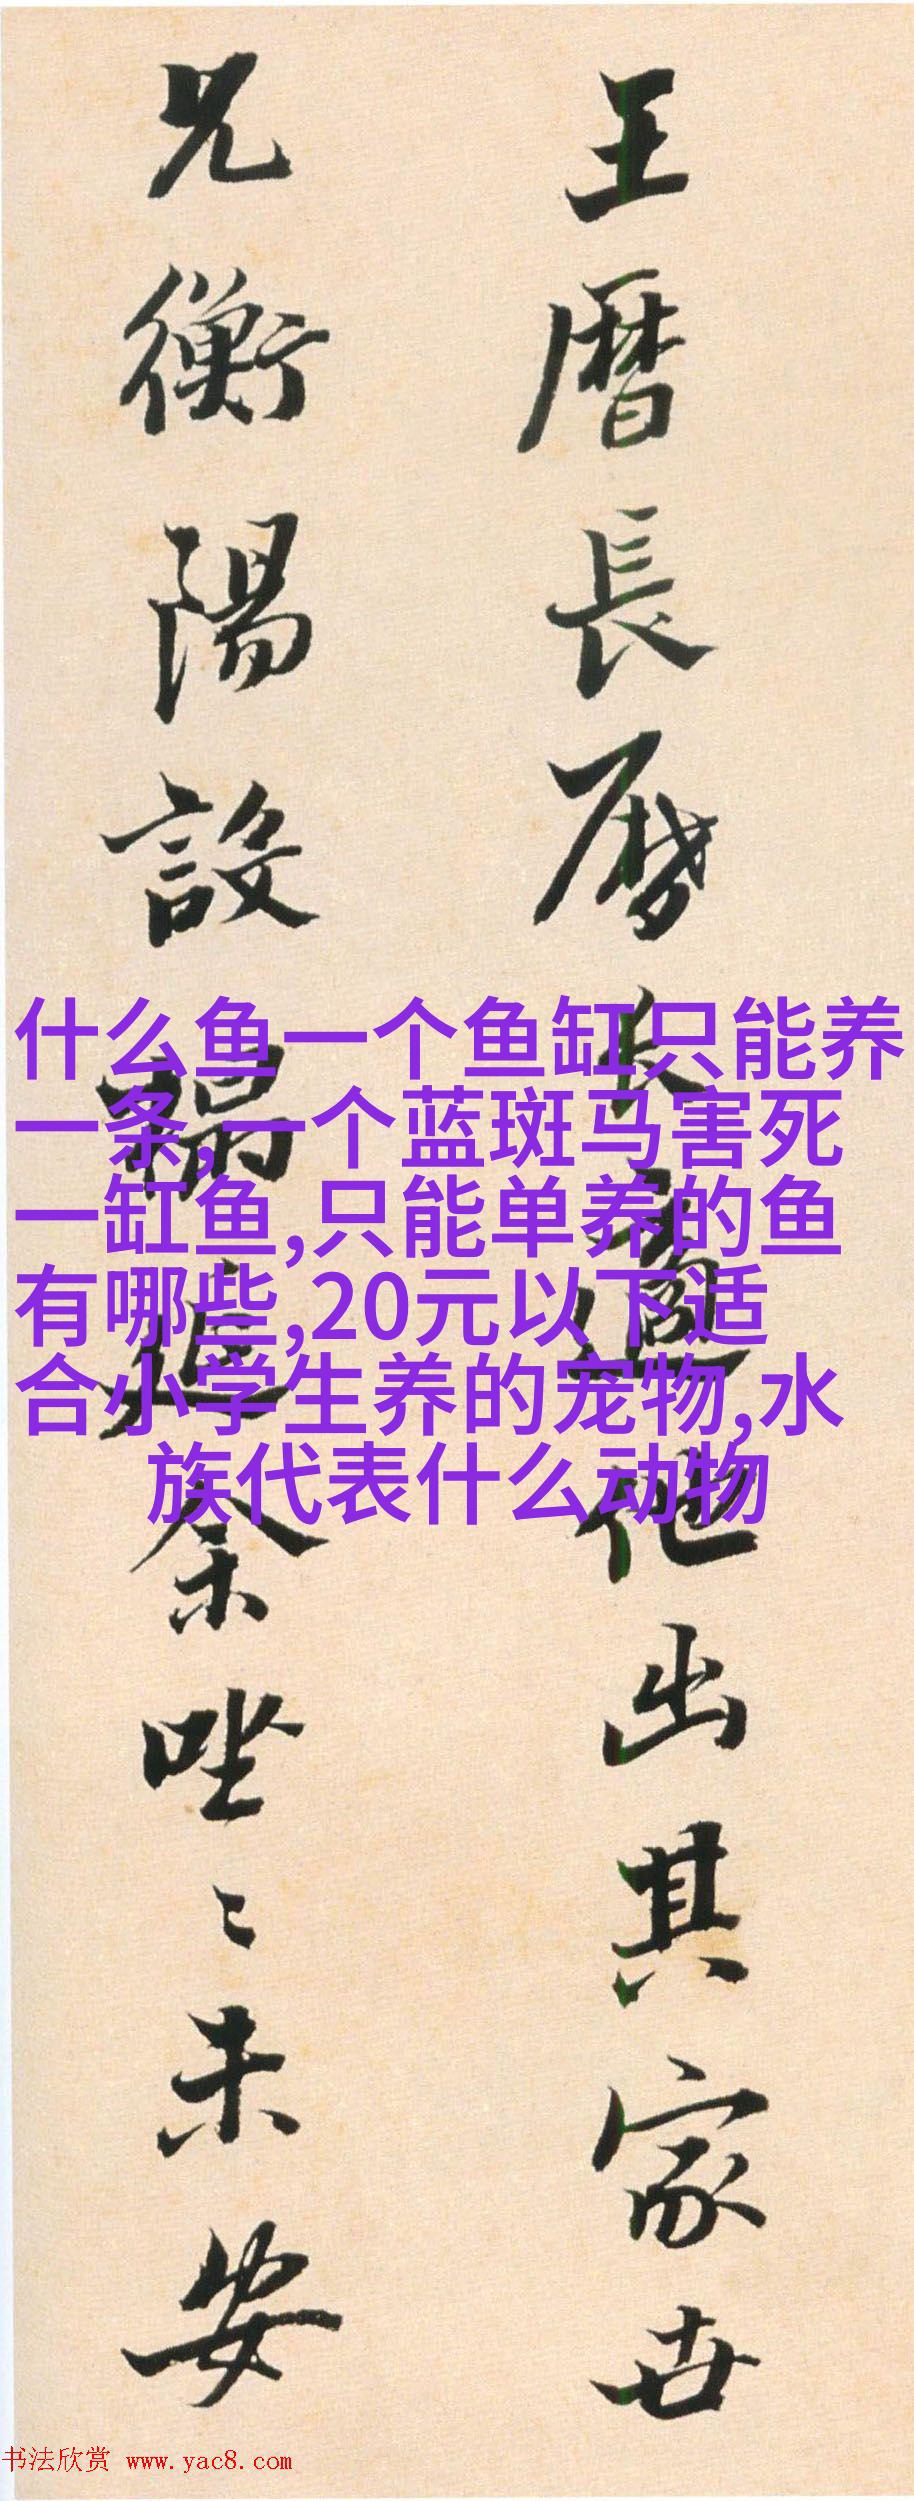 王曆長曆
長適他出其家廿
兄衡陽設
榻延余唑〻未安
什么鱼一个鱼缸只能养
一条,一个蓝斑马害死
一缸鱼,只能单养的鱼
有哪些,20元以下适
合小学生养的宠物,水
族代表什么动物
书法欣赏 www.yac8.com